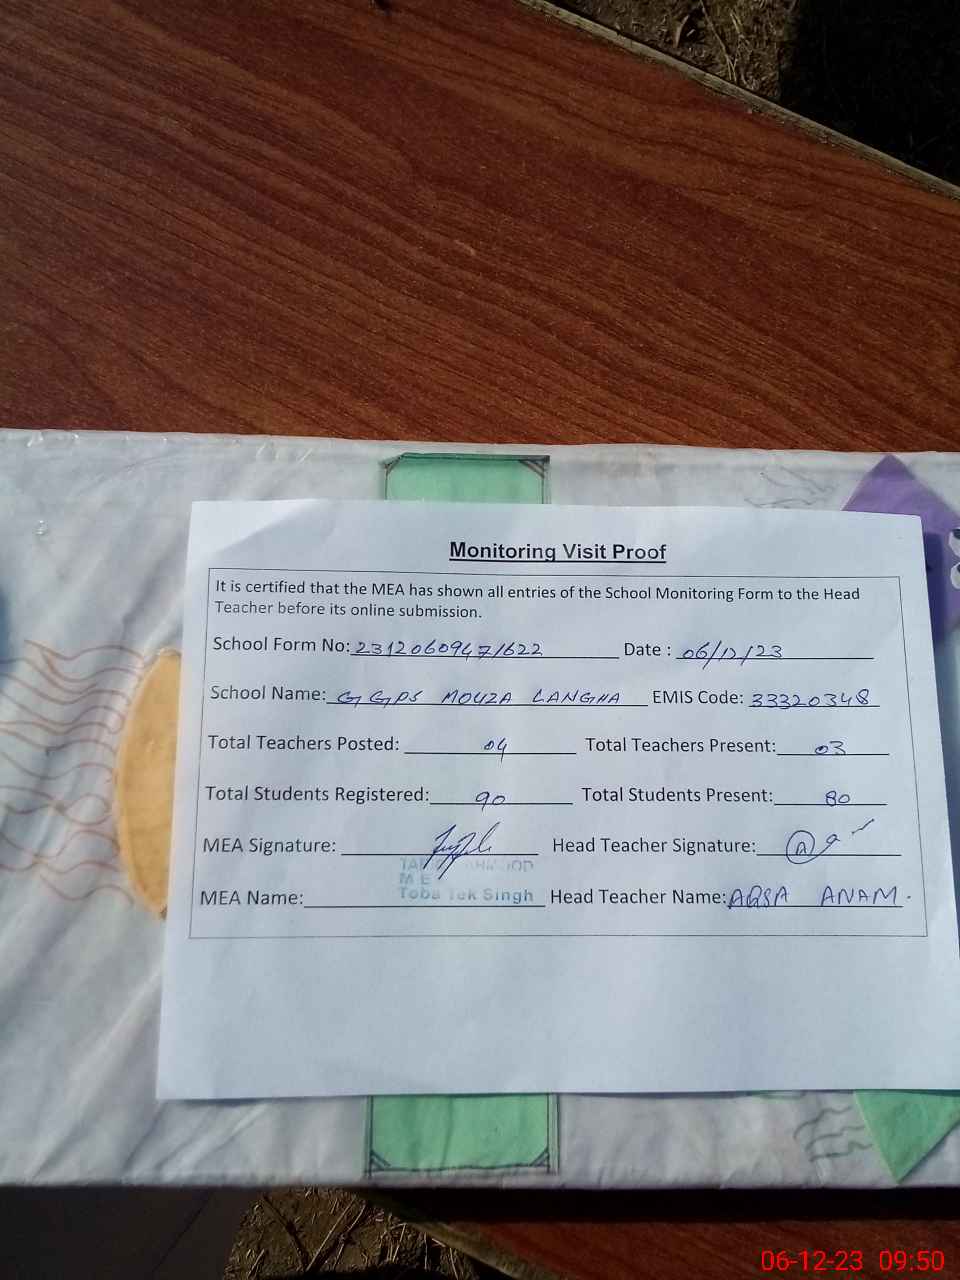 Monitoring Visit Proof
It is certified that the MEA has shown all entries of the School Monitoring Form to the Head
Teacher before its online submission.
School Form No: 23120609471622 Date : 06/12/23
School Name: GGPS MOUZA LANGHA EMIS Code: 33320348
Total Teachers Posted: 04 Total Teachers Present: 03
Total Students Registered: 90 Total Students Present: 80
MEA Signature: Head Teacher Signature:
ME
Toba Tek Singh
MEA Name: Head Teacher Name: AQSA ANAM.
06-12-23 09:50